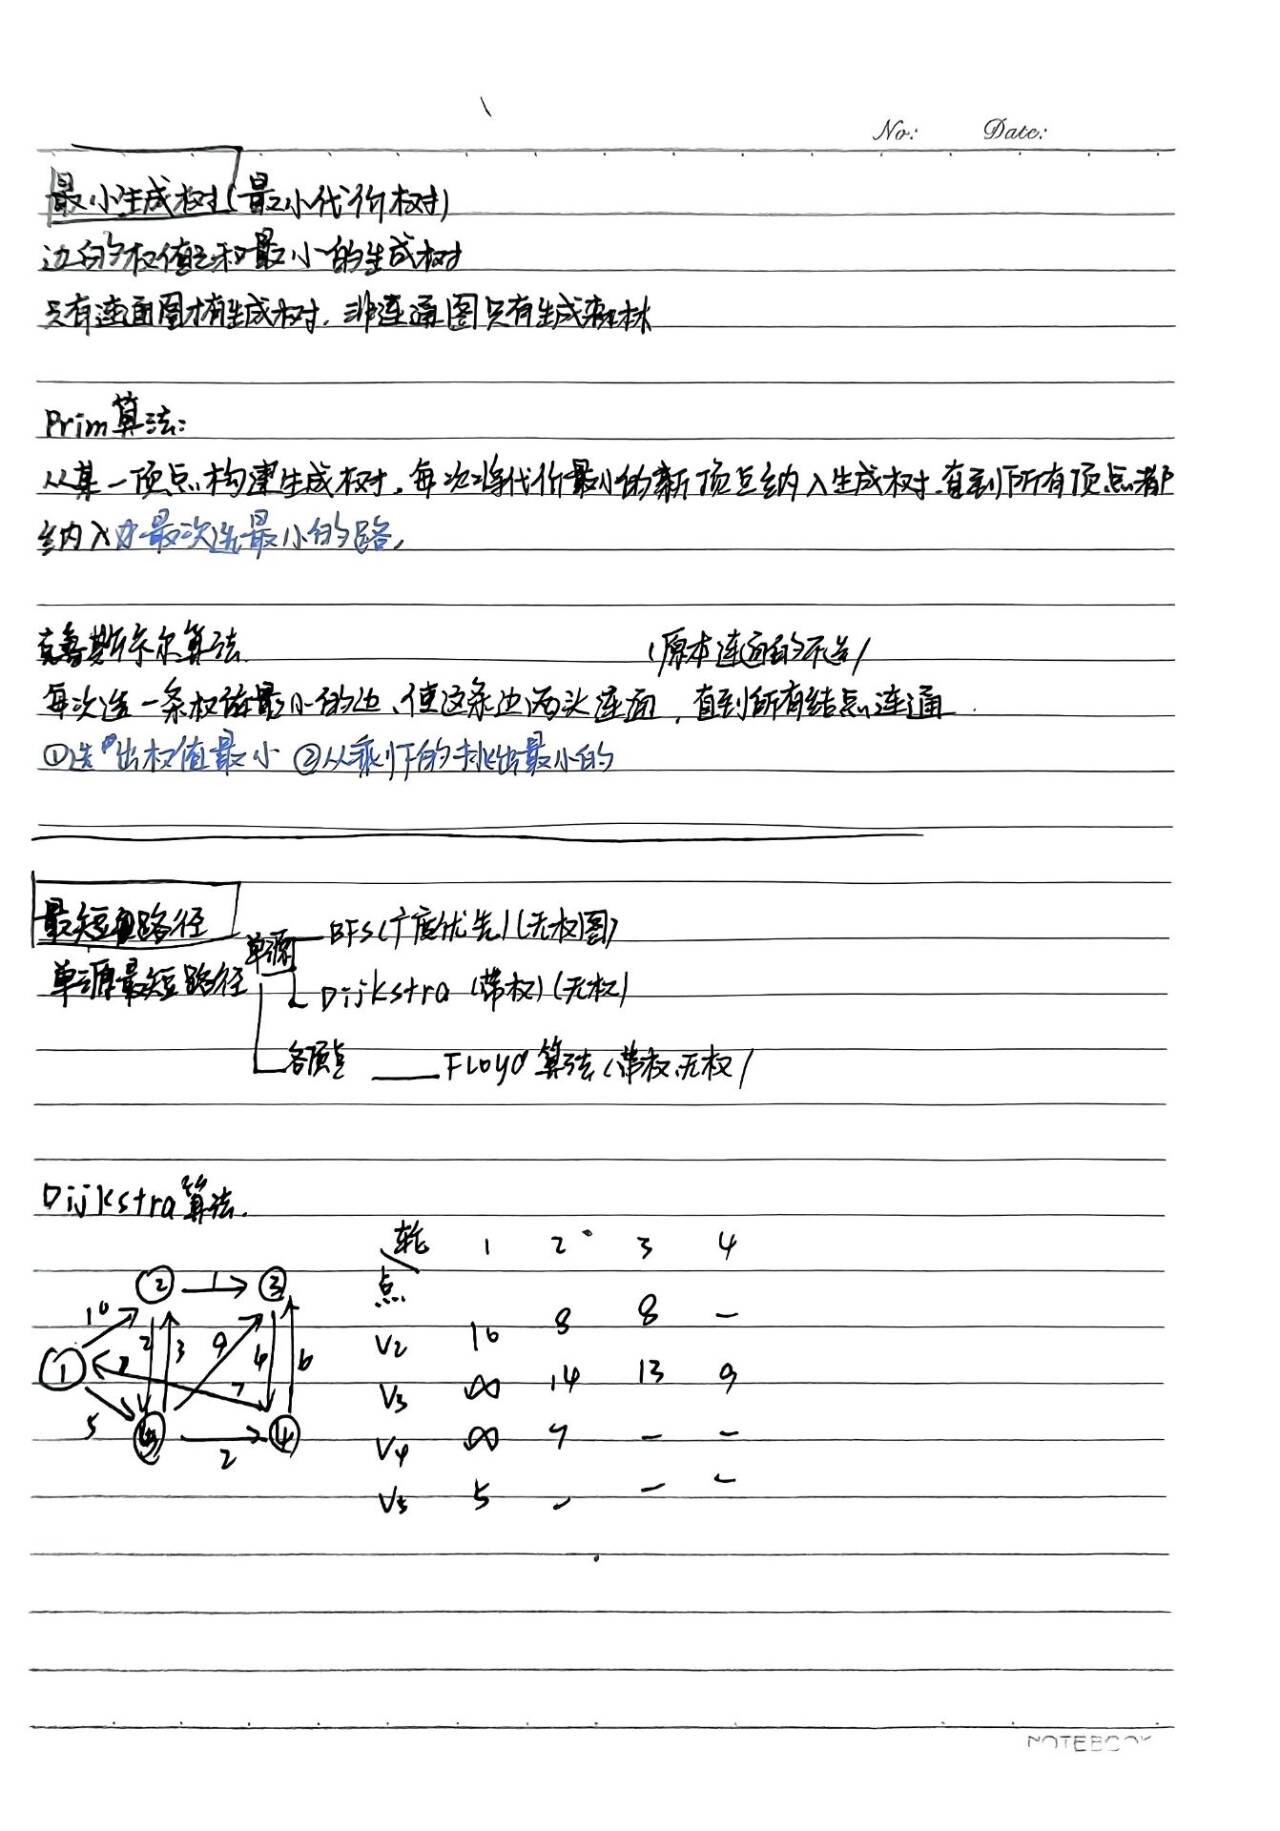 No: Date:
最小生成树(最小代价树)
边的权值之和最小的生成树
只有连通图才有生成树,非连通图只有生成森林
Prim算法:
从某一顶点构建生成树,每次将代价最小的新顶点纳入生成树,直到所有顶点都
纳入 最次选最小的路,
克鲁斯卡尔算法 (原本连通的不选)
每次选一条权值最小的边、使这条边两头连通,直到所有结点连通
①选出权值最小 ②从剩下的挑出最小的
最短路径
单源 BFS(广度优先)(无权图)
单源最短路径 Dijkstra (带权)(无权)
各顶点 Floyd 算法(带权,无权)
Dijkstra算法.
轮 1 2 3 4
点
② 1 ③
10 2 3 9 4 6
① 7 7
5
5 2 ④
V2 10 8 8 -
V3 ∞ 14 13 9
V4 ∞ 7 - -
V5 5 - - -
NOTEBOOK